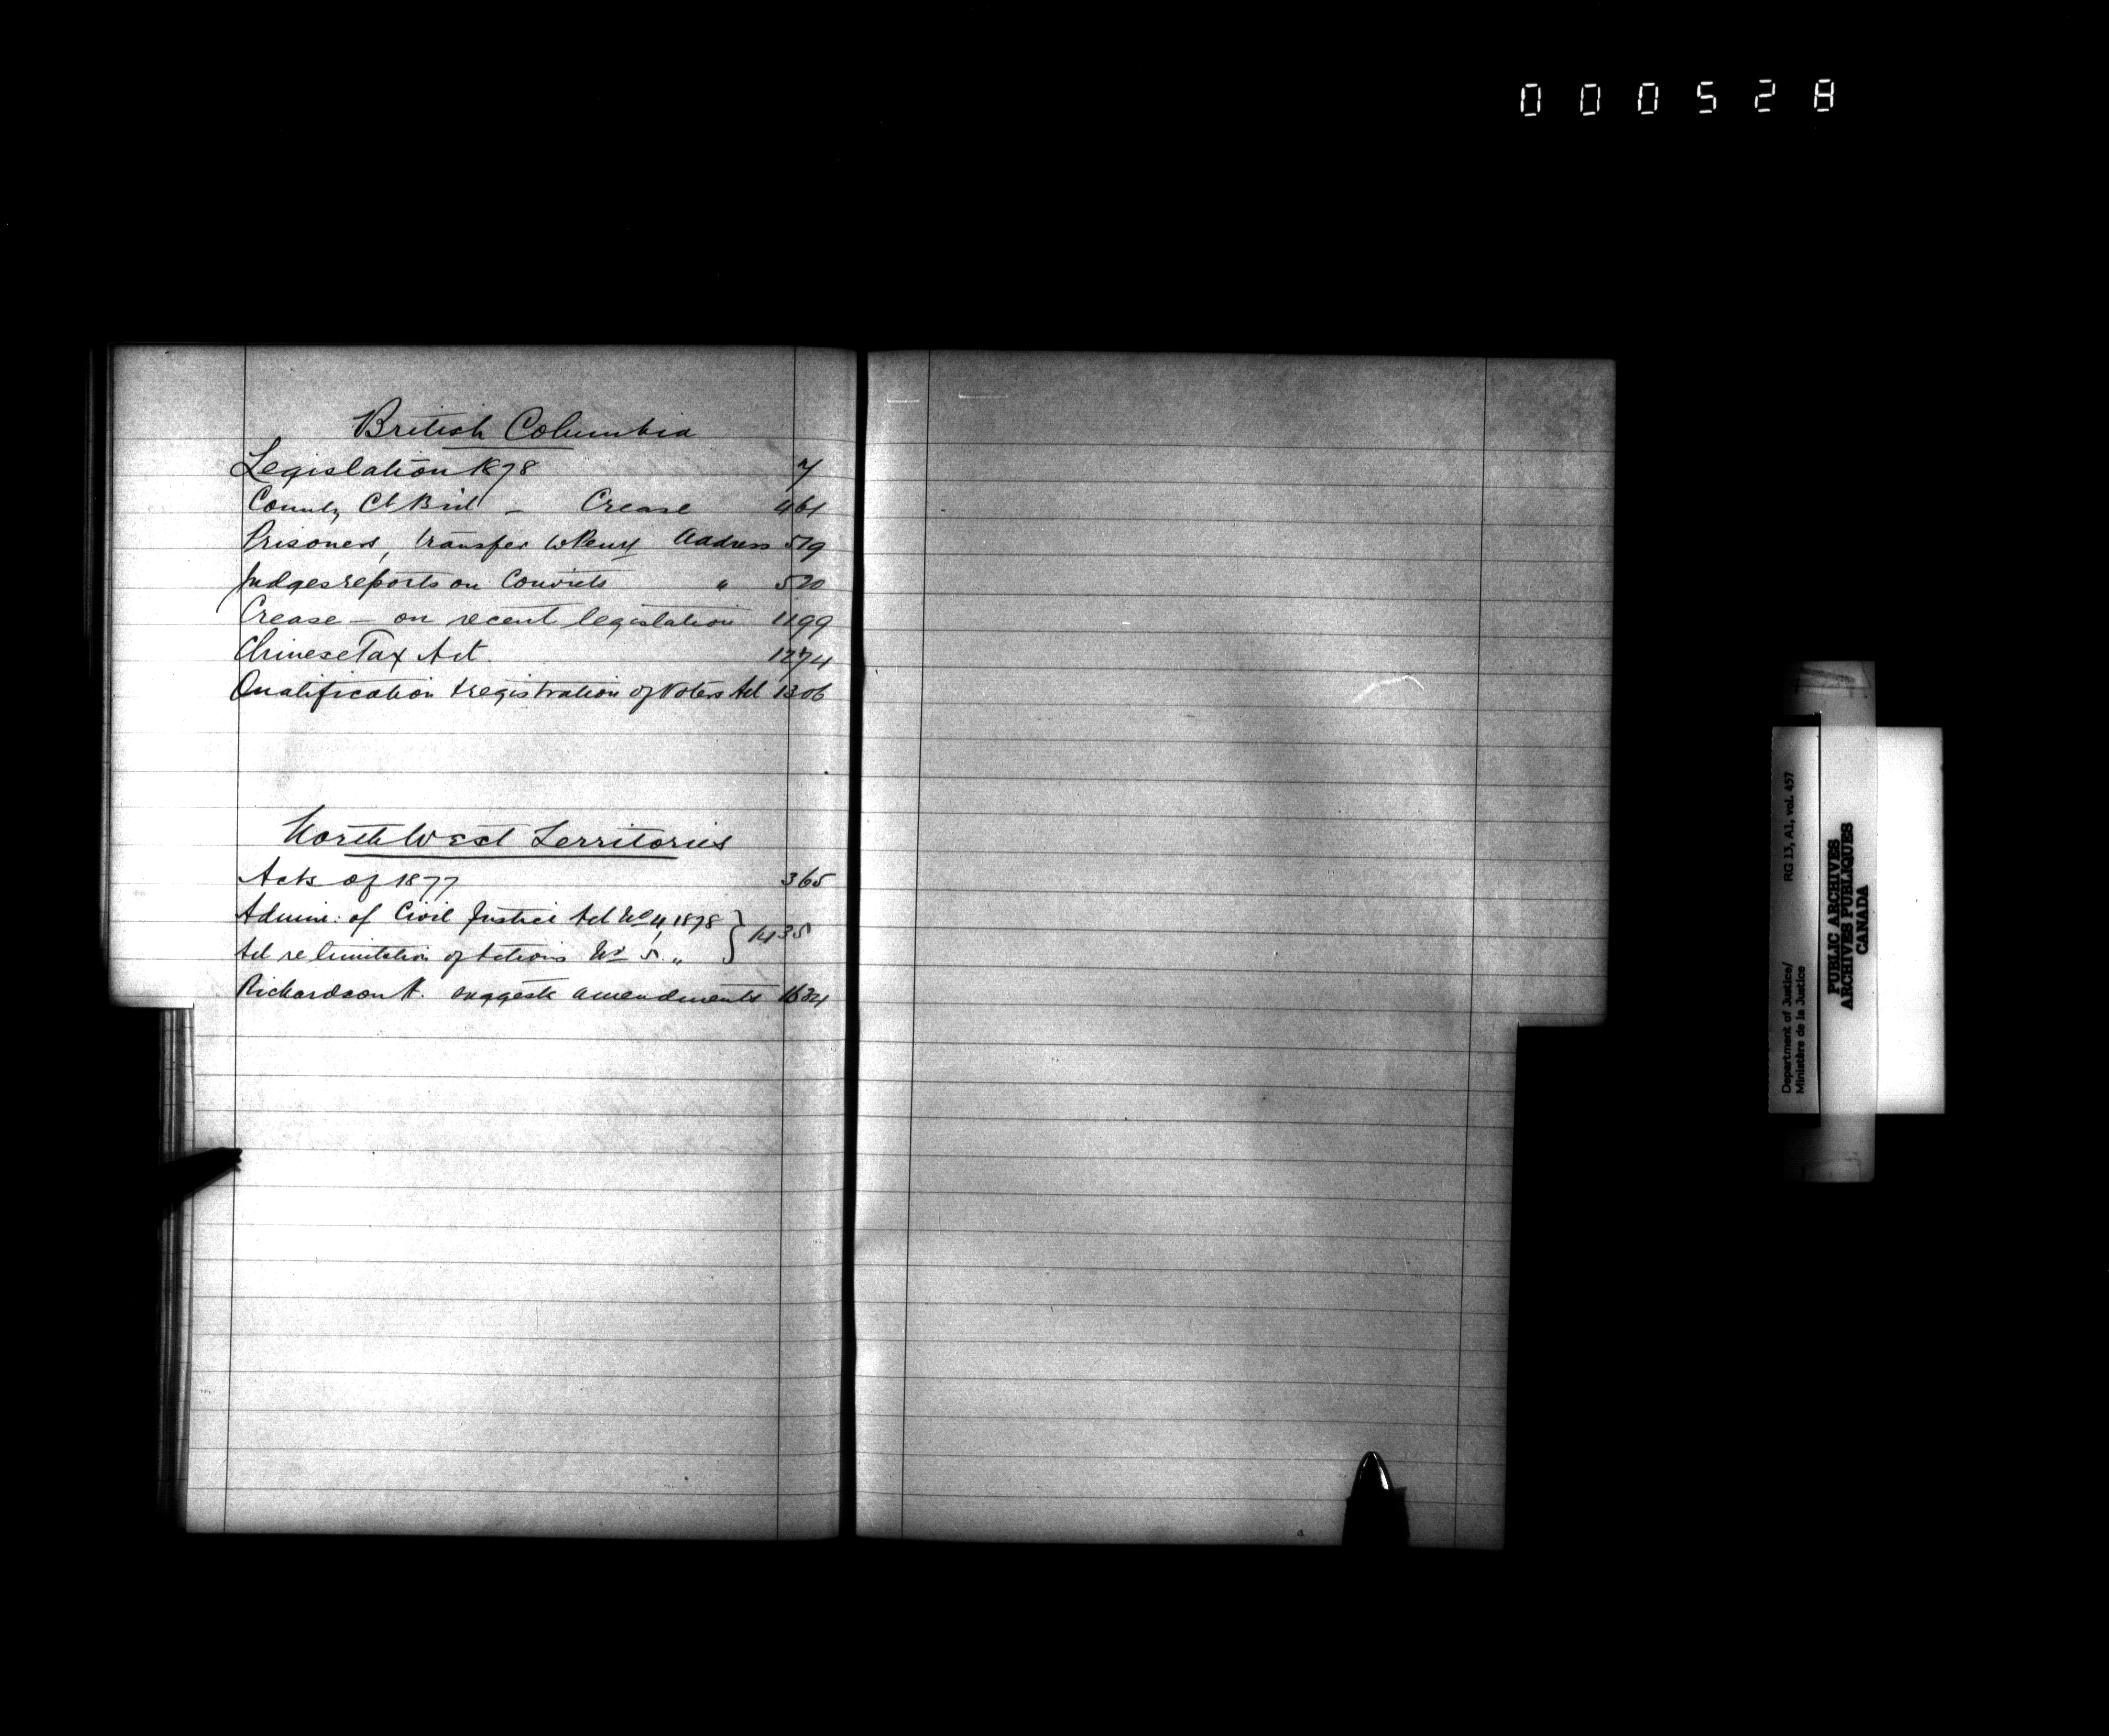 000528
British Columbia
Legislation 1878 7
County Ct Bill - Crease 461
Prisoners, transfer to Peny Address 519
Judges reports on Convicts " 520
Crease - on recent legislation 1199
Chinese Tax Act. 1274
Qualification & registration of Voters Act 1306
North West Territories
Acts of 1877 365
Admin: of Civil Justice Act No 4, 1878 } 1435
Act re limitation of Actions No 5. "
Richardson suggests amendments 1634
Department of Justice/ RG 13, A1, vol. 457
Ministère de la Justice
PUBLIC ARCHIVES
ARCHIVES PUBLIQUES
CANADA